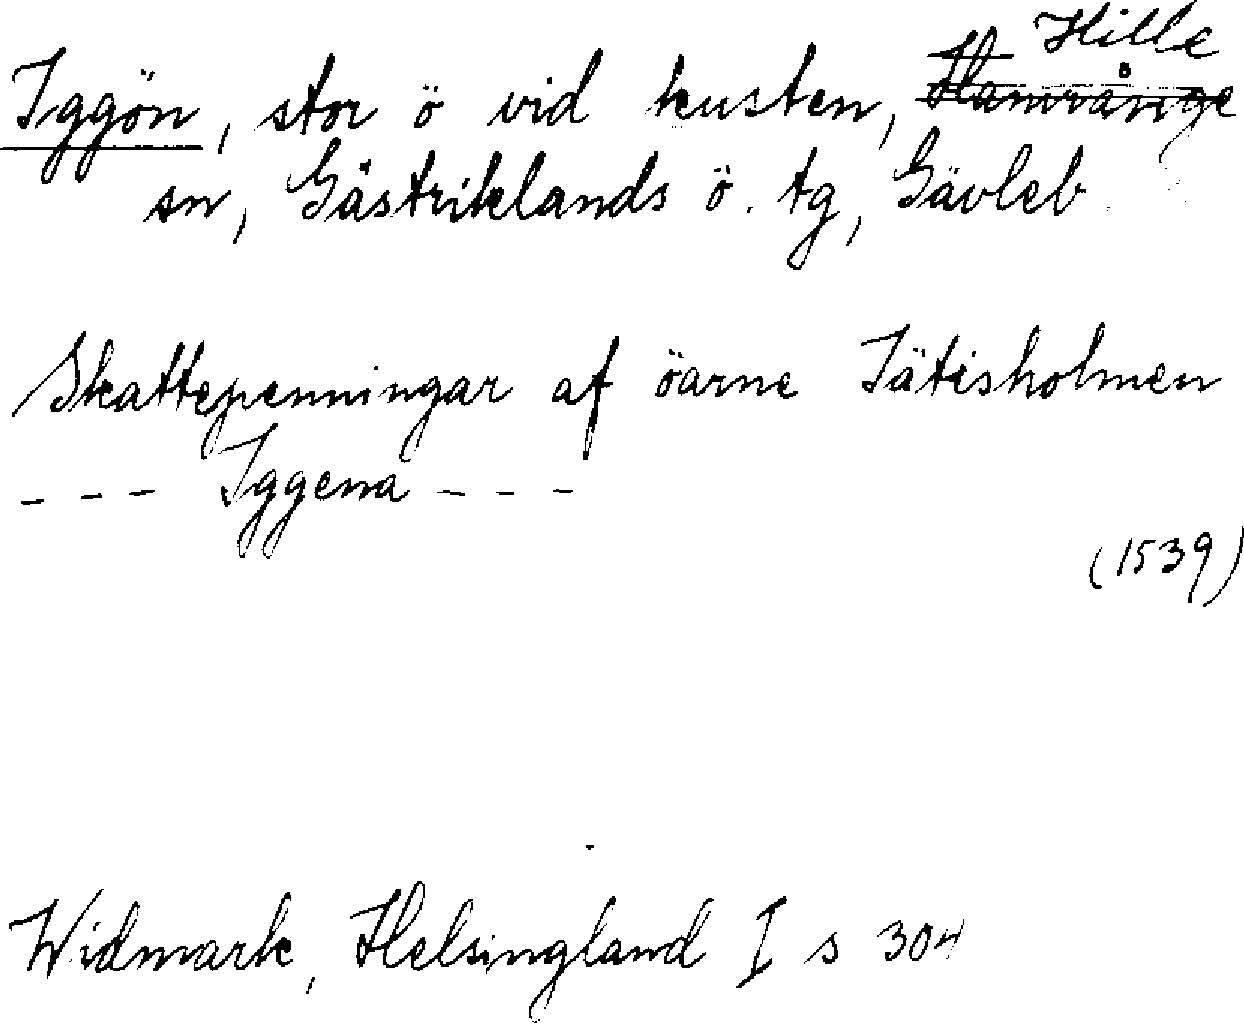 Hille
Iggön, stor ö vid kusten, Hamrånge
sn, Gästriklands ö. tg, Gävleb.
Skattepenningar af öarne Jätisholmen
- - - Iggena - - -
(1539)
Widmark, Helsingland I s 304